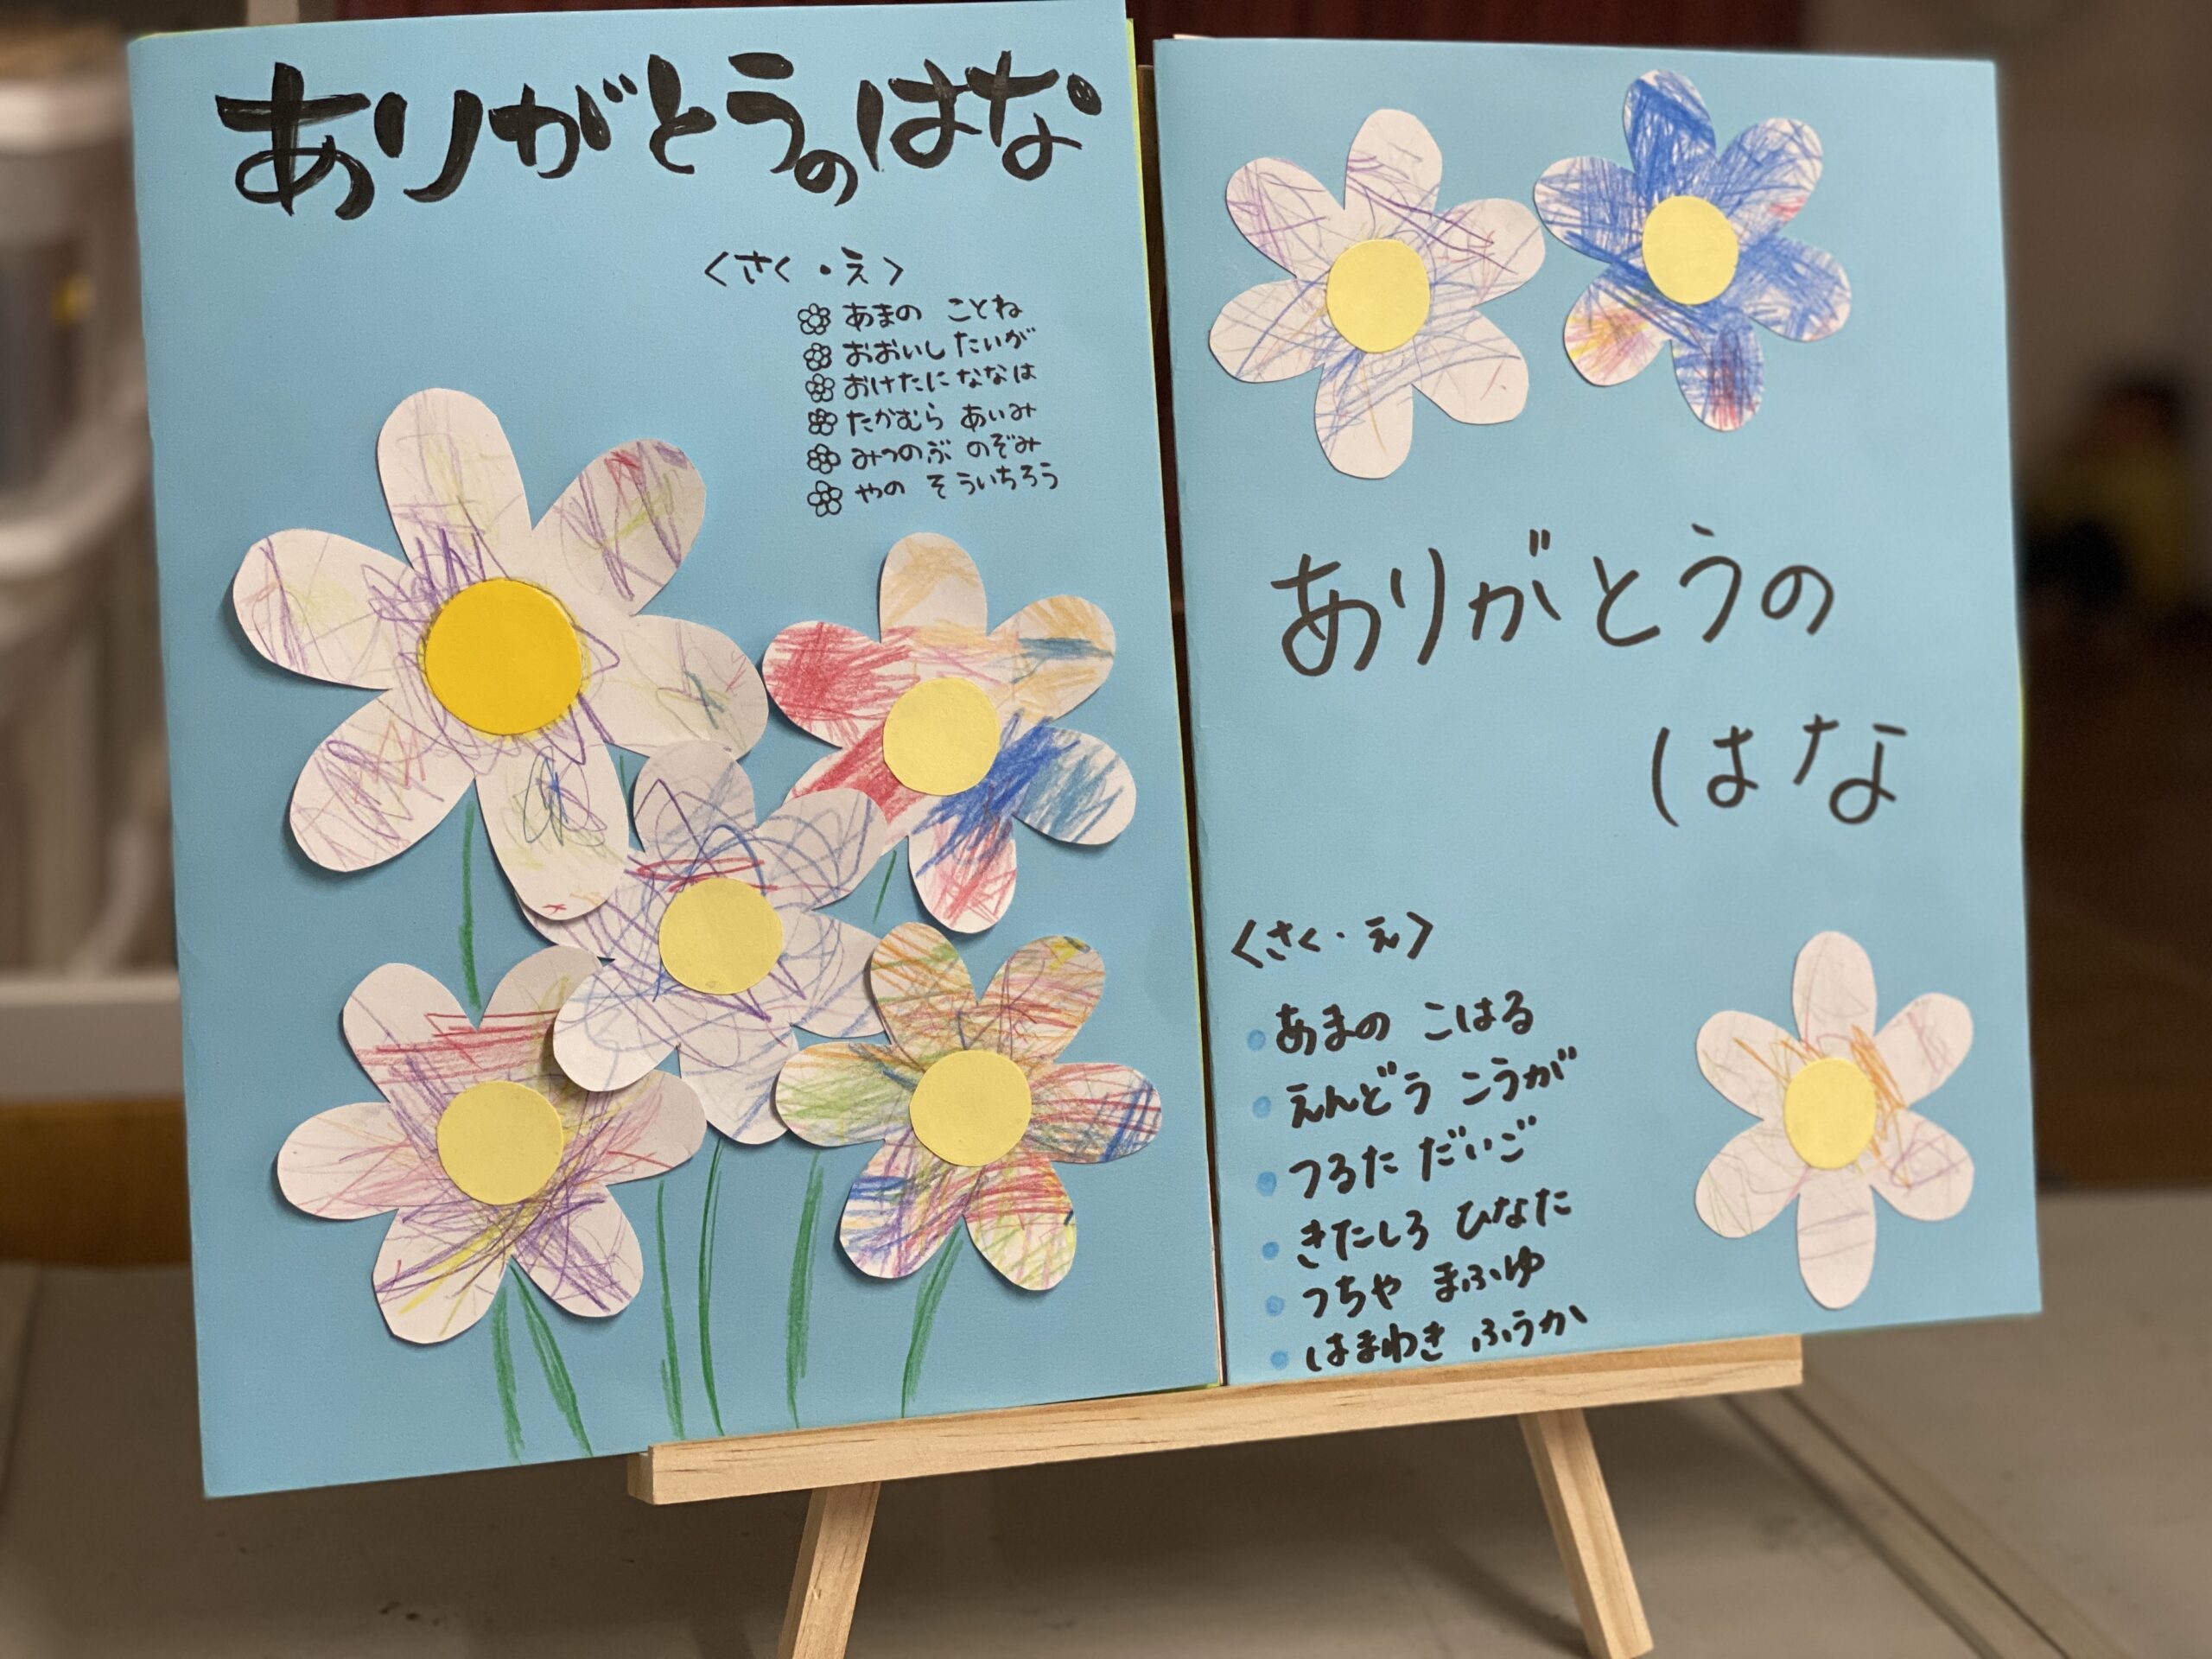 ありがとうのはな
〈さく・え〉
あまの ことね
おおいし たいが
おけたに ななは
たかむら あいみ
みつのぶ のぞみ
やの そういちろう
ありがとうの
はな
〈さく・え〉
あまの こはる
えんどう こうが
つるた だいご
きたしろ ひなた
つちや まふゆ
はまわき ふうか